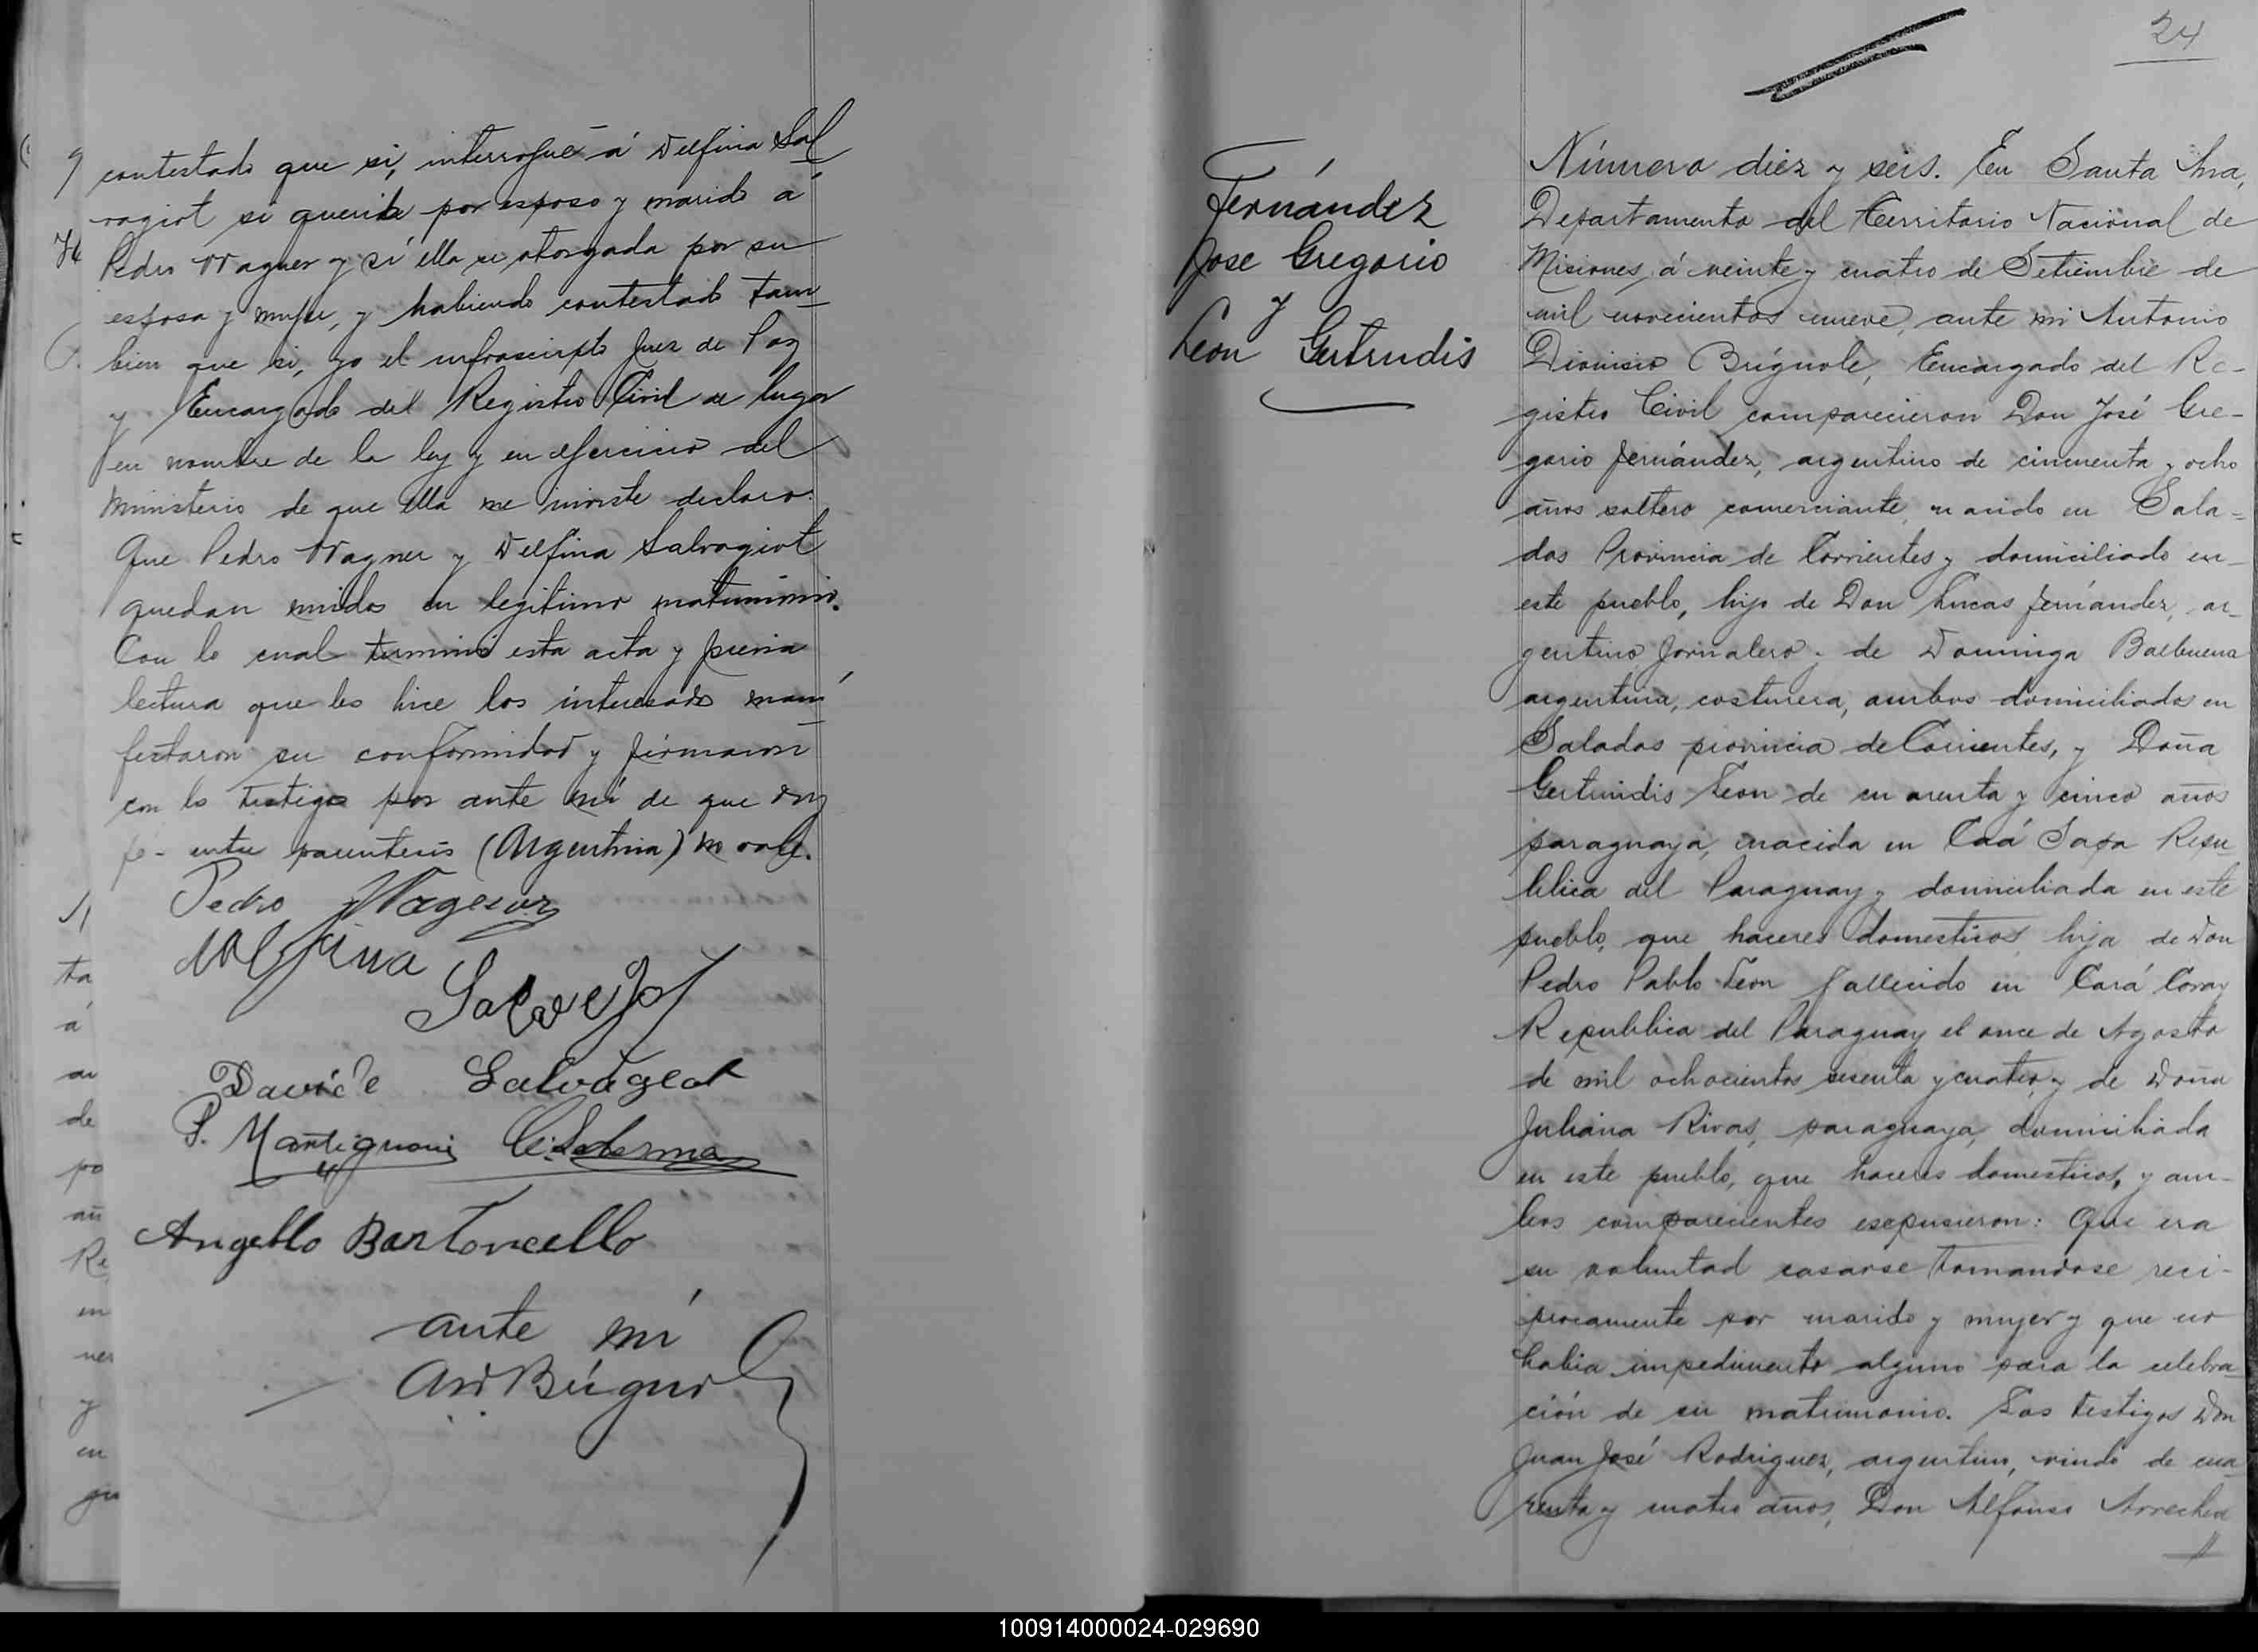 contestado que si, interrogué á Delfina Sal
vagiot si queria por esposo y marido á
Pedro Wagner y si ella se otorgada por su
esposa y mujer, y habiendo contestado tam
bien que si, yo el infrascripto Juez de Paz
y Encargado del Registro Civil de lugar
en nombre de la ley y en ejercicio del
ministerio de que ella me inviste declaro:
Que Pedro Wagner y Delfina Salvagiot
quedan unidos en legitimo matrimonio.
Con lo cual terminó esta acta y previa
lectura que les hice los interesados mani
festaron su conformidad y firmaron
con los testigos por ante mí de que doy
fe - entre parentesis (Argentina) no vale.
Pedro Wagener
Delfina
Salvejot
Davide Salvageot
P. Martignoni C. Ledesma
Angello Bartoncello
ante mí
24
Fernández
Jose Gregorio
y
Leon Gertrudis
Número diez y seis. En Santa Ana,
Departamento del Territorio Nacional de
Misiones, á veinte y cuatro de Setiembre de
mil novecientos nueve, ante mi Antonio
Dionisio Brignole, Encargado del Re-
gistro Civil comparecieron Don José Gre-
gorio Fernández, argentino de cincuenta y ocho
años soltero comerciante, nacido en Sala-
das Provincia de Corrientes y domiciliado en
este pueblo, hijo de Don Lucas Fernández, ar-
gentino Jornalero y de Dominga Balbuena
argentina, costurera, ambos domiciliados en
Saladas provincia de Corrientes, y Doña
Gertrudis Leon de cuarenta y cinco años
paraguaya, nacida en Caá Sapa Repu-
blica del Paraguay y domiciliada en este
pueblo, que haceres domesticos, hija de Don
Pedro Pablo Leon fallecido en Cará Coray
Republica del Paraguay el once de Agosto
de mil ochocientos sesenta y cuatro, y de Doña
Juliana Rivas, paraguaya, domiciliada
en este pueblo, que haceres domesticos, y am-
bos comparecientes escpusieron: Que era
su voluntad casarse tomandose reci-
procamente por marido y mujer y que no
habia impedimento alguno para la celebra-
ción de su matrimonio. Los testigos Don
Juan José Rodriguez, argentino, viudo de cua-
renta y cuatro años, Don Alfonso Arrechea
100914000024-029690